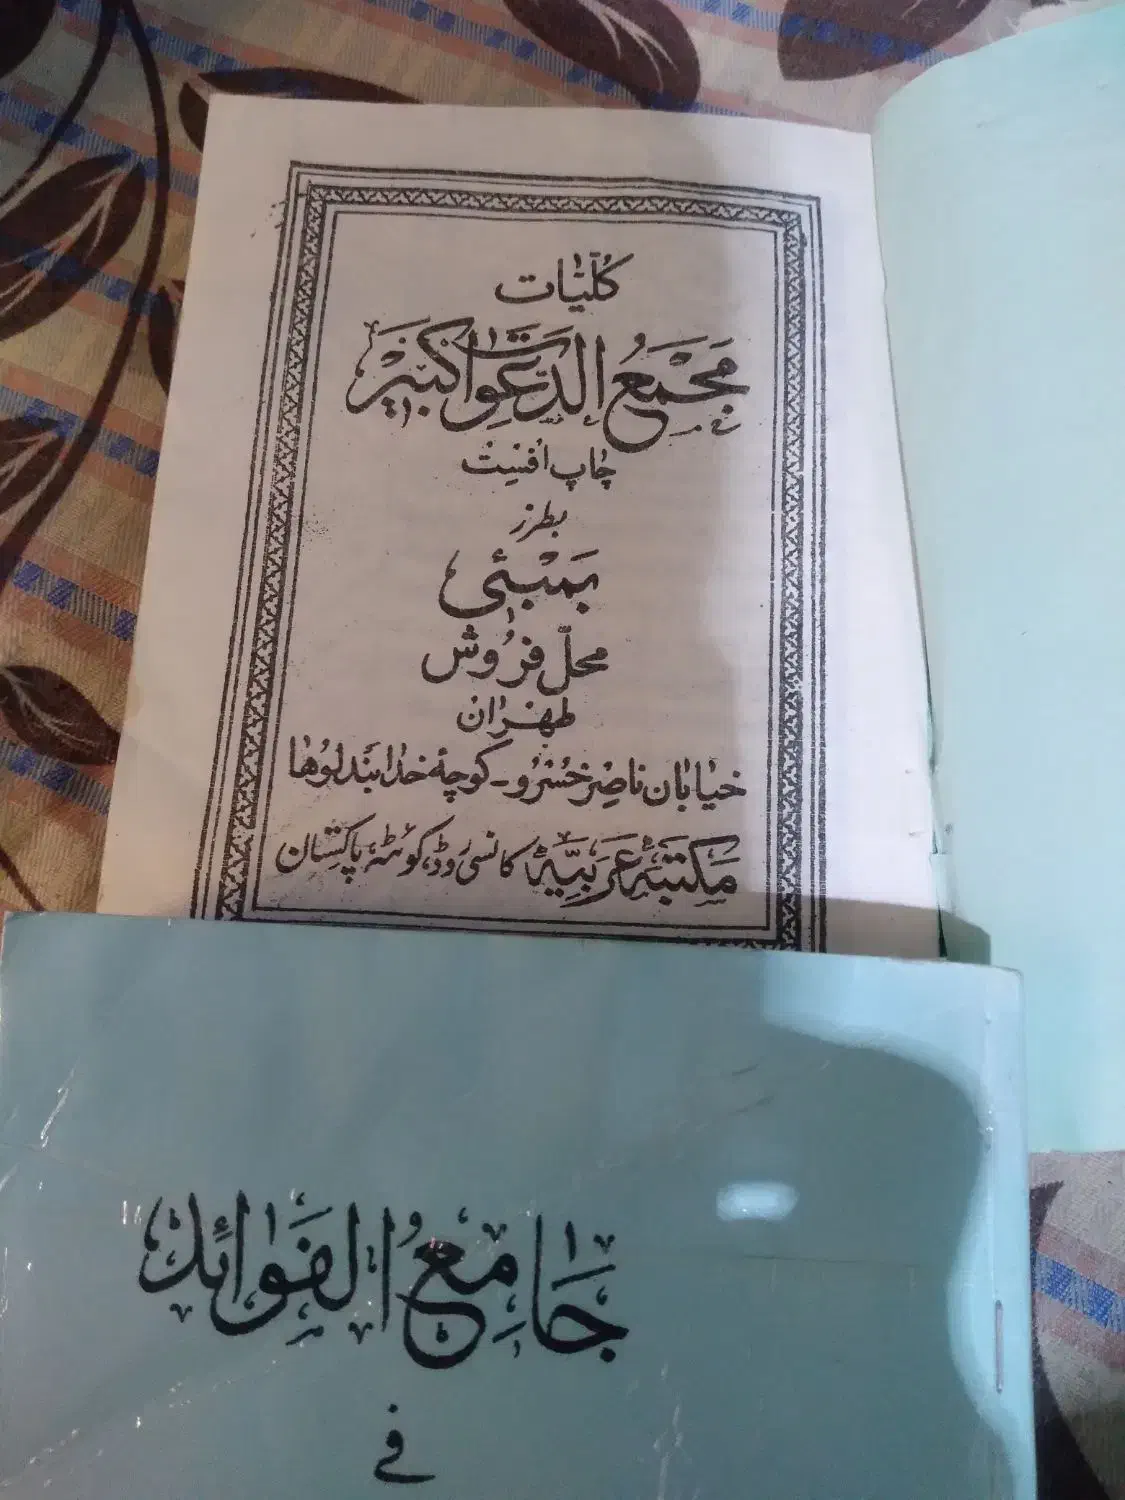 كُلّیات
مَجْمَعُ الدَّعَوات کَبیْر
چاپ اُفسِت
بطرز
بَمْبَئی
محلّ فرُوش
طهران
خیابان ناصِر خسُرو۔ کوچۂ خدا بَندلوُها
مَکتبَۂ عَرَبیَّۃ کانسی روڈ، کوئٹہ پاکِستان
جَامِعُ الفَوائد
في